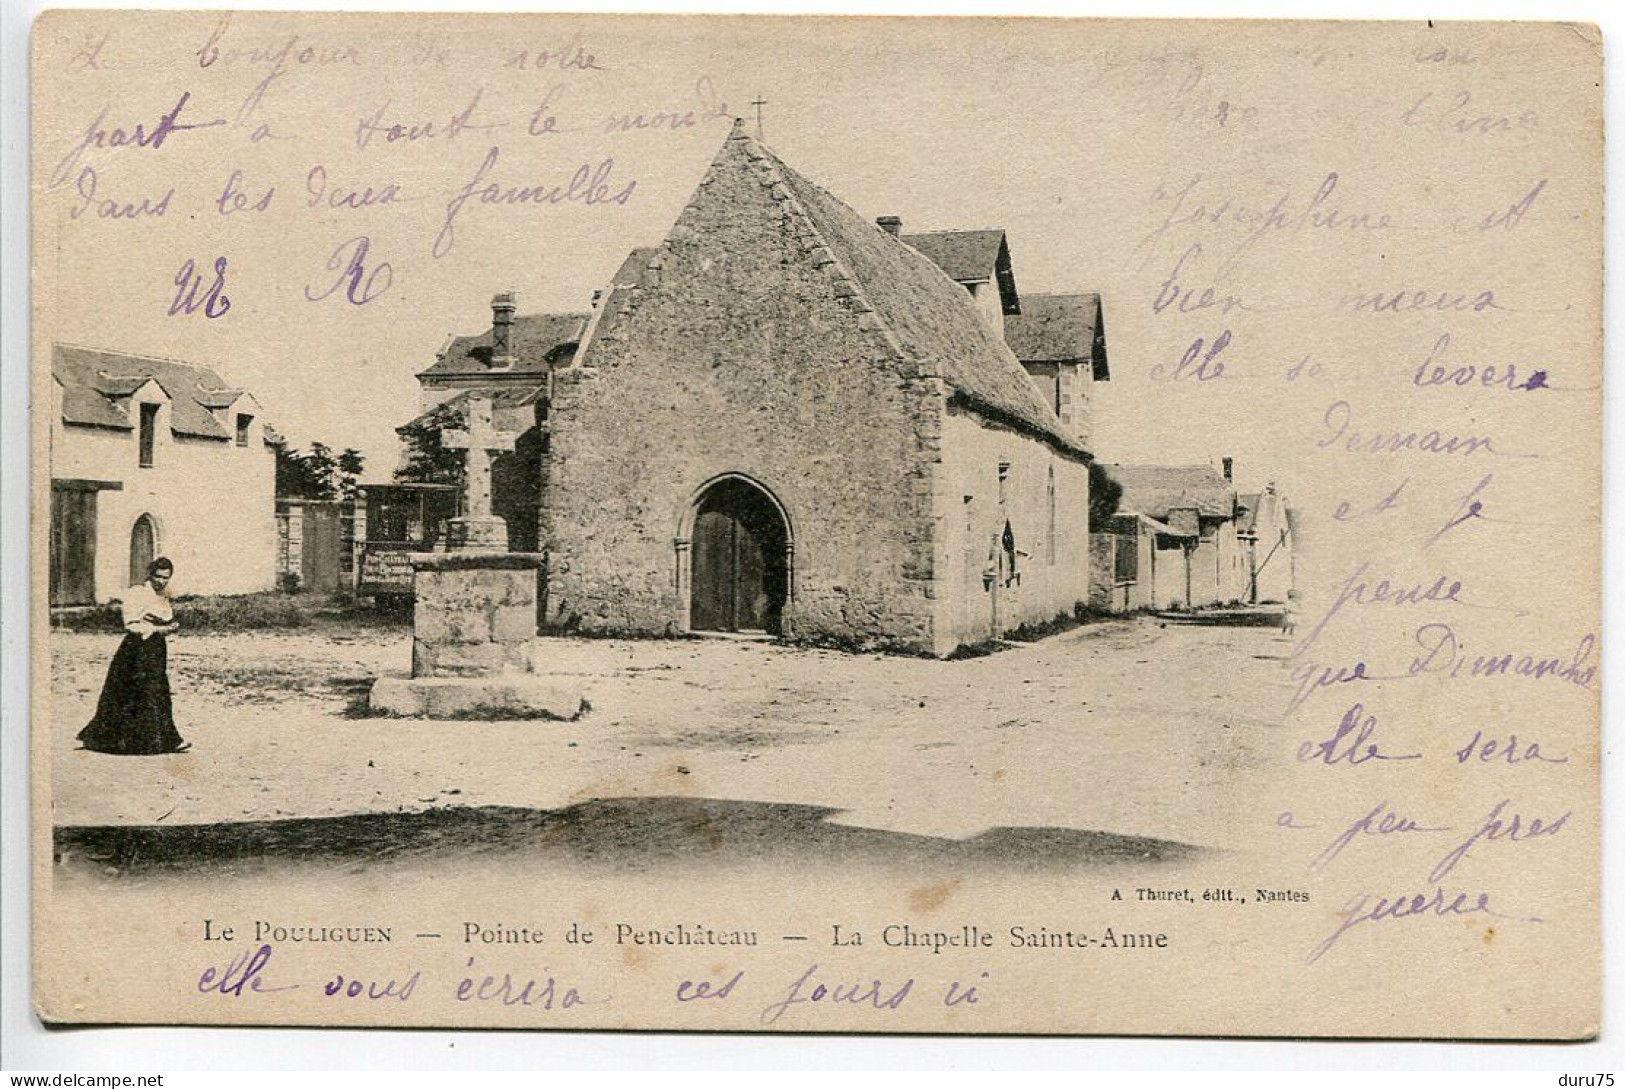 bonjour de notre
part a tout le monde
dans les deux familles
UE R
chere
Josephine est
bien mieux
elle se levera
demain
et je
pense
que Dimanche
elle sera
a peu pres
guerie
elle vous écrira ces jours ci
A Thuret, édit., Nantes
Le Pouliguen — Pointe de Penchâteau — La Chapelle Sainte-Anne
delcampe.net
duru75